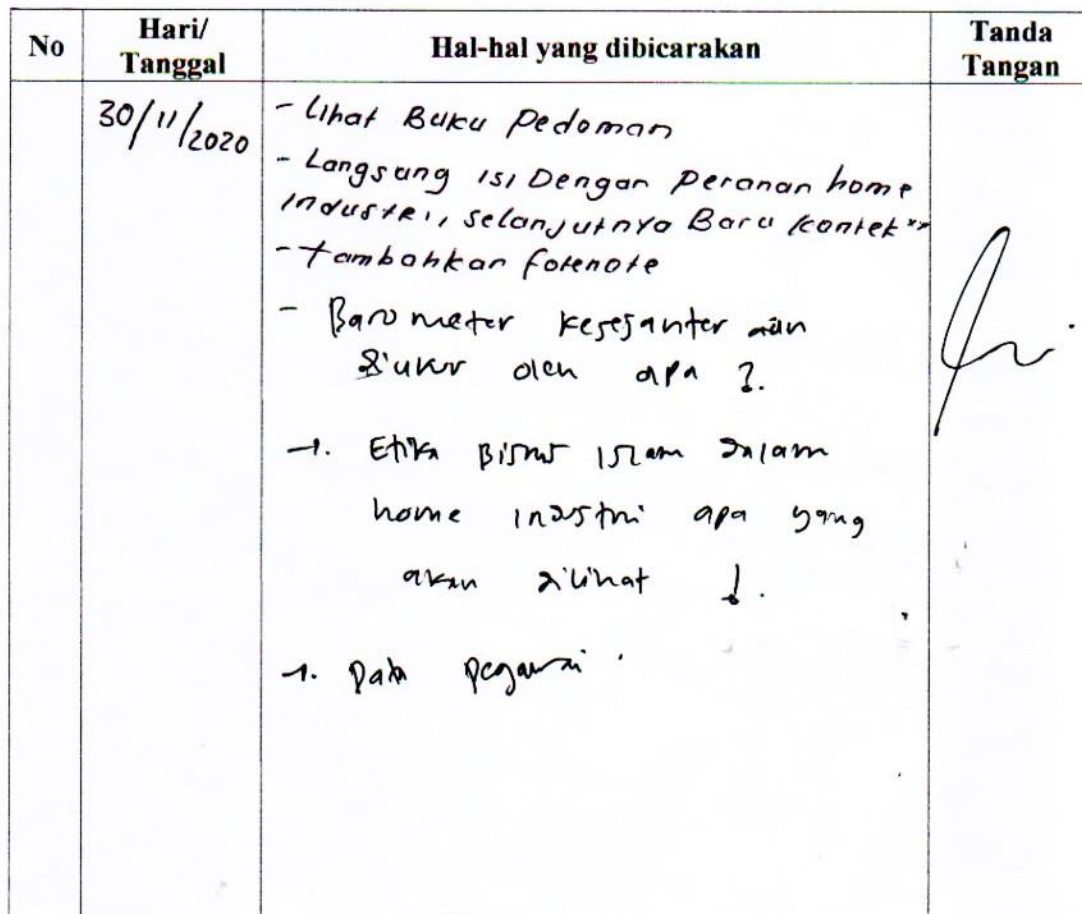 No
Hari/
Tanggal
Hal-hal yang dibicarakan
Tanda
Tangan
30/11/2020
- Lihat Buku Pedoman
- Langsung isi Dengan Peranan home
Industri, selanjutnya Baru kontek
- tambahkan fotenote
- Barometer kesejahteraan
Diukur oleh apa ?.
-. Etika Bisnis Islam dalam
home industri apa yang
akan dilihat !.
-. Data pegawai.